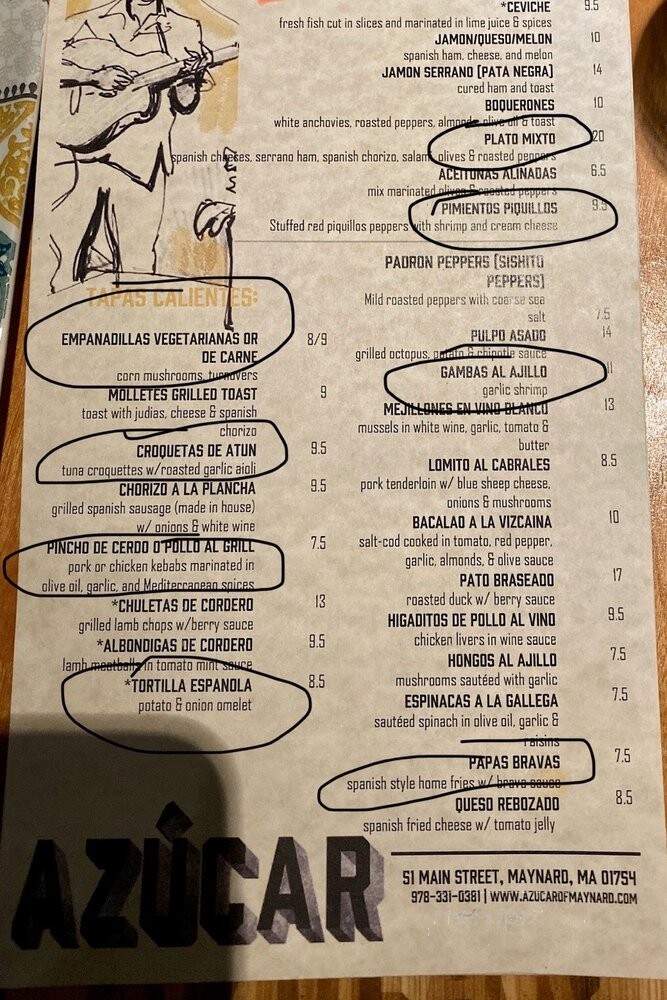 *CEVICHE 9.5
fresh fish cut in slices and marinated in lime juice & spices
JAMON/QUESO/MELON 10
spanish ham, cheese, and melon
JAMON SERRANO [PATA NEGRA] 14
cured ham and toast
BOQUERONES 10
white anchovies, roasted peppers, almonds, olive oil & toast
PLATO MIXTO 20
spanish cheeses, serrano ham, spanish chorizo, salami, olives & roasted peppers
ACEITUNAS ALINADAS 6.5
mix marinated olives & roasted peppers
PIMIENTOS PIQUILLOS 9.5
Stuffed red piquillos peppers with shrimp and cream cheese
TAPAS CALIENTES:
EMPANADILLAS VEGETARIANAS OR 8/9
DE CARNE
corn mushrooms, turnovers
MOLLETES GRILLED TOAST 9
toast with judias, cheese & spanish
chorizo
CROQUETAS DE ATUN 9.5
tuna croquettes w/roasted garlic aioli
CHORIZO A LA PLANCHA 9.5
grilled spanish sausage (made in house)
w/ onions & white wine
PINCHO DE CERDO O POLLO AL GRILL 7.5
pork or chicken kebabs marinated in
olive oil, garlic, and Mediterranean spices
*CHULETAS DE CORDERO 13
grilled lamb chops w/berry sauce
*ALBONDIGAS DE CORDERO 9.5
lamb meatballs in tomato mint sauce
*TORTILLA ESPANOLA 8.5
potato & onion omelet
PADRON PEPPERS [SISHITO
PEPPERS]
Mild roasted peppers with coarse sea
salt 7.5
PULPO ASADO 14
grilled octopus, potato & chipotle sauce
GAMBAS AL AJILLO 11
garlic shrimp
MEJILLONES EN VINO BLANCO 13
mussels in white wine, garlic, tomato &
butter
LOMITO AL CABRALES 8.5
pork tenderloin w/ blue sheep cheese,
onions & mushrooms
BACALAO A LA VIZCAINA 10
salt-cod cooked in tomato, red pepper,
garlic, almonds, & olive sauce
PATO BRASEADO 17
roasted duck w/ berry sauce
HIGADITOS DE POLLO AL VINO 9.5
chicken livers in wine sauce
HONGOS AL AJILLO 7.5
mushrooms sautéed with garlic
ESPINACAS A LA GALLEGA 7.5
sautéed spinach in olive oil, garlic &
raisins
PAPAS BRAVAS 7.5
spanish style home fries w/ brava sauce
QUESO REBOZADO 8.5
spanish fried cheese w/ tomato jelly
AZÚCAR
51 MAIN STREET, MAYNARD, MA 01754
978-331-0381 | WWW.AZUCAROFMAYNARD.COM